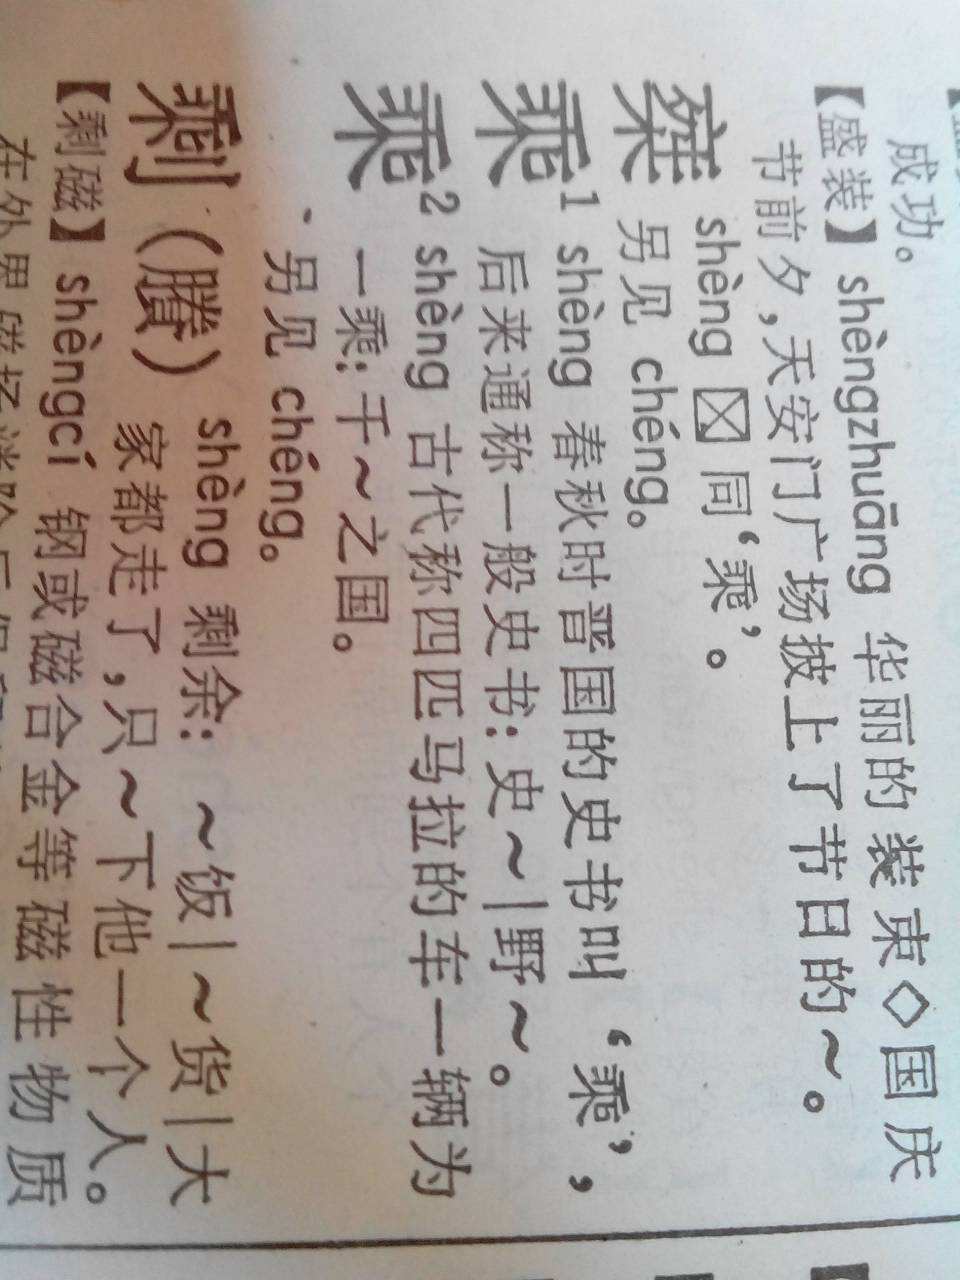 成功。
【盛装】shèngzhuāng 华丽的装束◇国庆
节前夕,天安门广场披上了节日的～。
椉 shèng 〼同‘乘’。
另见 chéng。
乘¹ shèng 春秋时晋国的史书叫‘乘’,
后来通称一般史书:史～|野～。
乘² shèng 古代称四匹马拉的车一辆为
一乘:千～之国。
另见 chéng。
剩(賸) shèng 剩余:～饭|～货|大
家都走了,只～下他一个人。
【剩磁】shèngcí 钢或磁合金等磁性物质